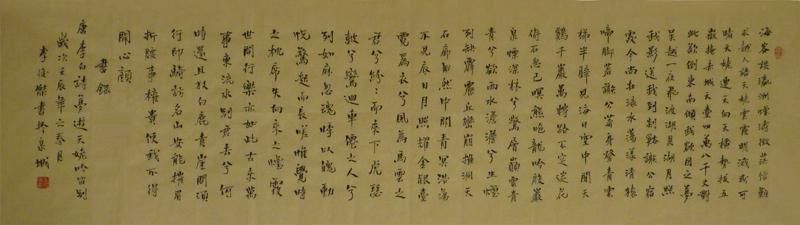 海客談瀛洲煙濤微茫信難
求越人語天姥雲霞明滅或可
睹天姥連天向天橫勢拔五
嶽掩赤城天臺四萬八千丈對
此欲倒東南傾我欲因之夢
吳越一夜飛渡鏡湖月湖月照
我影送我到剡谿謝公宿
處今尚在淥水蕩漾清猿
啼腳著謝公屐身登青雲
梯半壁見海日空中聞天
雞千巖萬轉路不定迷花
倚石忽已暝熊咆龍吟殷巖
泉慄深林兮驚層巔雲青
青兮欲雨水澹澹兮生煙
列缺霹靂丘巒崩摧洞天
石扉訇然中開青冥浩蕩
不見底日月照耀金銀臺
霓為衣兮風為馬雲之
君兮紛紛而來下虎瑟
鼓兮鸞迴車僊之人兮
列如麻忽魂悸以魄動
怳驚起而長嗟惟覺時
之枕席失向來之煙霞
世間行樂亦如此古來萬
事東流水別君去兮何
時還且放白鹿青崖間須
行即騎訪名山安能摧眉
折腰事權貴使我不得
開心顏
書錄
唐李白詩夢遊天姥吟留別
歲次壬辰年春月
李俊傑書於泉城